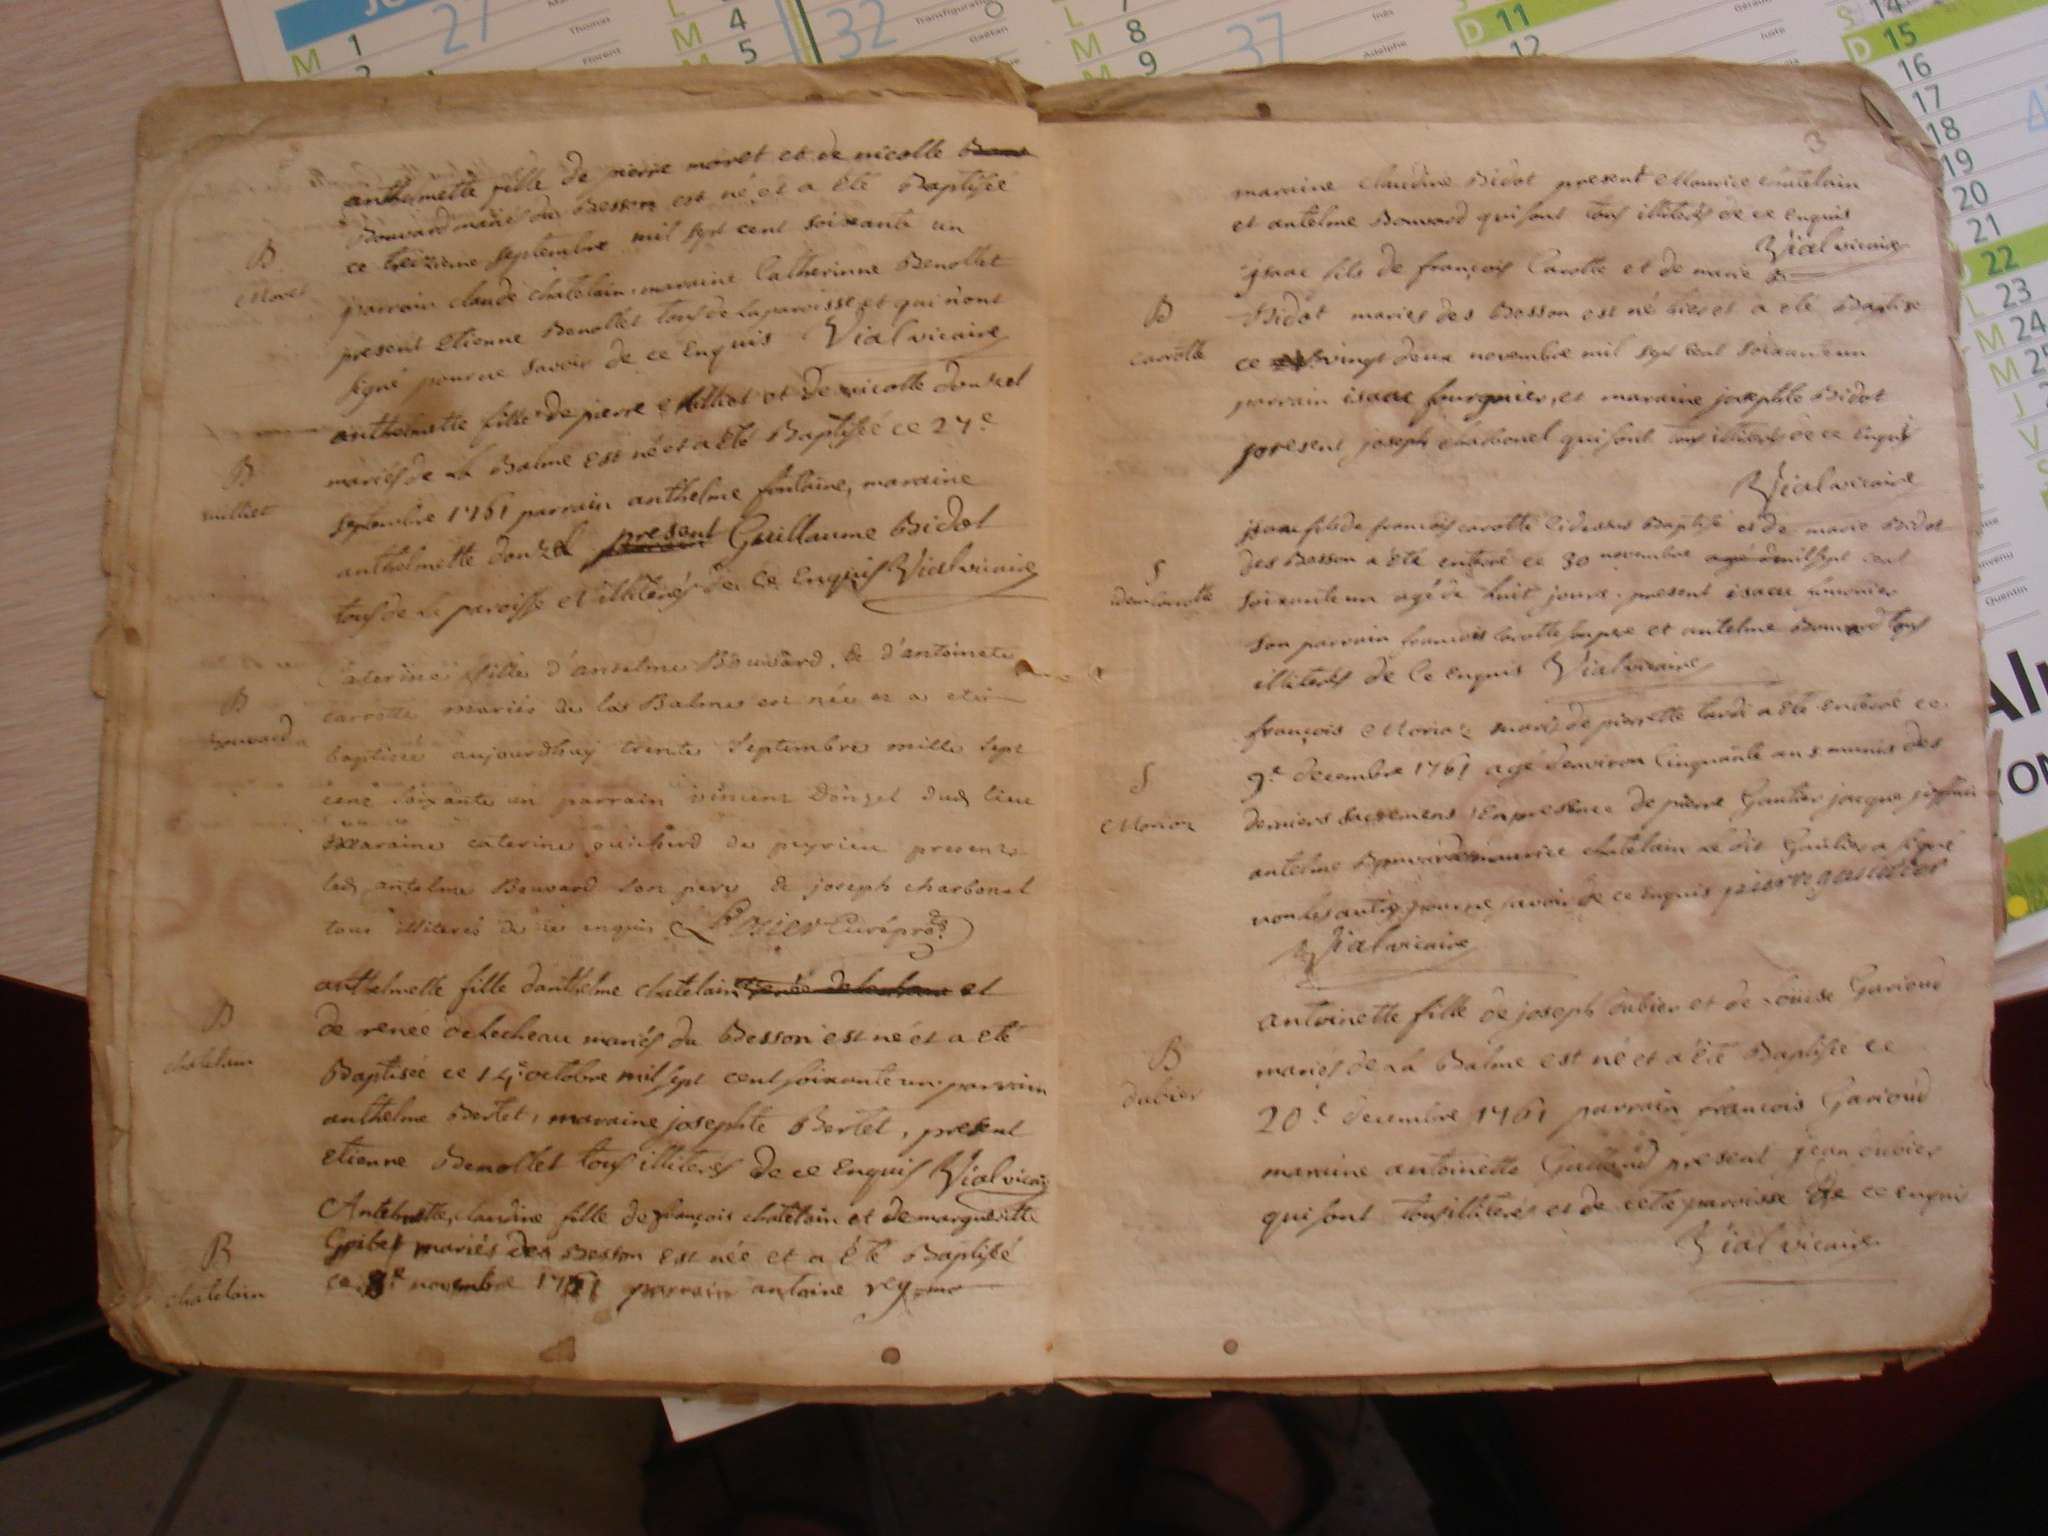 M 1 27 Thomas
Florent
M 4
M 5
32
Transfiguration
Gaétan
L
M 8
M 9
37
Inès
Adelphe
D 11
12
Juste
S 14
D 15
16
17
18
19
20
21
22
L 23
M 24
M 25
J
V
S
Quentin
anthelmette fille de pierre moret et de nicolle
Bouvard mariés du Besson est né et a été Baptisée
ce treizieme septembre mil sept cent soixante un
parrain claude chatelain, maraine Catherinne Benollet
present etienne Benollet tous de la paroisse et qui n'ont
signé pour ne savoir de ce Enquis Vial vicaire
B
Moret
anthelmette fille de pierre Milliet et de nicolle donzel
mariés de La Balme est né et a été Baptisée ce 27e
septembre 1761 parrain anthelme fontaine, maraine
anthelmette donzel present Guillaume Bidot
tous de La paroisse et illiterés de ce Enquis Vial vicaire
B
milliet
Caterine fille d'anselme Bouvard, & d'antoinete
carrotte mariés de la Balme est née et a eté
baptisée aujourdhuy trente septembre mille sept
cent soixante un parrain vincent Donzel dud lieu
maraine caterine guicherd de peyrieu presents
led antelme Bouvard son pere & joseph charbonel
tous illiterés de ce enquis
B
bouvard
anthelmette fille danthelme chatelain et
de renée delecheau mariés du Besson est né et a eté
Baptisée ce 14e octobre mil sept cent soixante un parrain
anthelme Bertet, maraine josephte Bertet, present
etienne Benollet tous illiterés de ce Enquis Vial vicaire
B
chatelain
Antelmette, claudine fille de françois chatelain et de margueritte
mariés des Besson est née et a été Baptisée
ce 8e novembre 1761 parrain antoine
B
chatelain
3
maraine claudine Bidot present Maurice chatelain
et antelme Bouvard qui sont tous illiterés de ce enquis
Vial vicaire
isaac fils de françois Carotte et de marie
Bidot mariés des Besson est né hier et a eté Baptisé
ce vingt deux novembre mil sept cent soixante un
parrain isaac fourgnier, et maraine josephte Bidot
present joseph charbonel qui sont tous illiterés de ce Enquis
Vial vicaire
B
carrotte
isaac fils de francois carotte cidessus Baptisé et de marie Bidot
des Besson a été enterré ce 30 novembre mil sept cent
soixante un agé de huit jours. present isaac
son parrain francois carotte son pere et antelme Bouvard tous
illiterés de ce enquis Vial vicaire
S
françois Moriaz mari de pierrette tardi a été enterré ce
9e decembre 1761 agé d'environ Cinquante ans munis des
derniers sacremens En presence de pierre Gautier jacque
antelme Bouvard maurice chatelain Le dit Gautier a signé
non les autres pour ne savoir de ce enquis pierre gautier
Vial vicaire
S
Moriaz
antoinette fille de joseph dubier et de Loüise Garioud
mariés de La Balme est né et a été Baptisée ce
20e decembre 1761 parrain francois Garioud
maraine antoinette present jean
qui sont tous illiterés et de cette paroisse de ce enquis
Vial vicaire
B
dubier